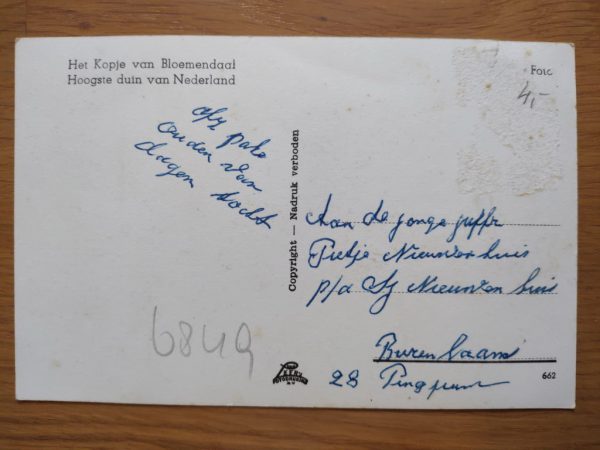 Het Kopje van Bloemendaal
Hoogste duin van Nederland
Foto
4,-
ouden van
dagen tocht
Copyright — Nadruk verboden
Aan de jonge juffr
Tietje Nieuwenhuis
p/a Sj Nieuwenhuis
Buren laan
28 Pingjum
6849
662